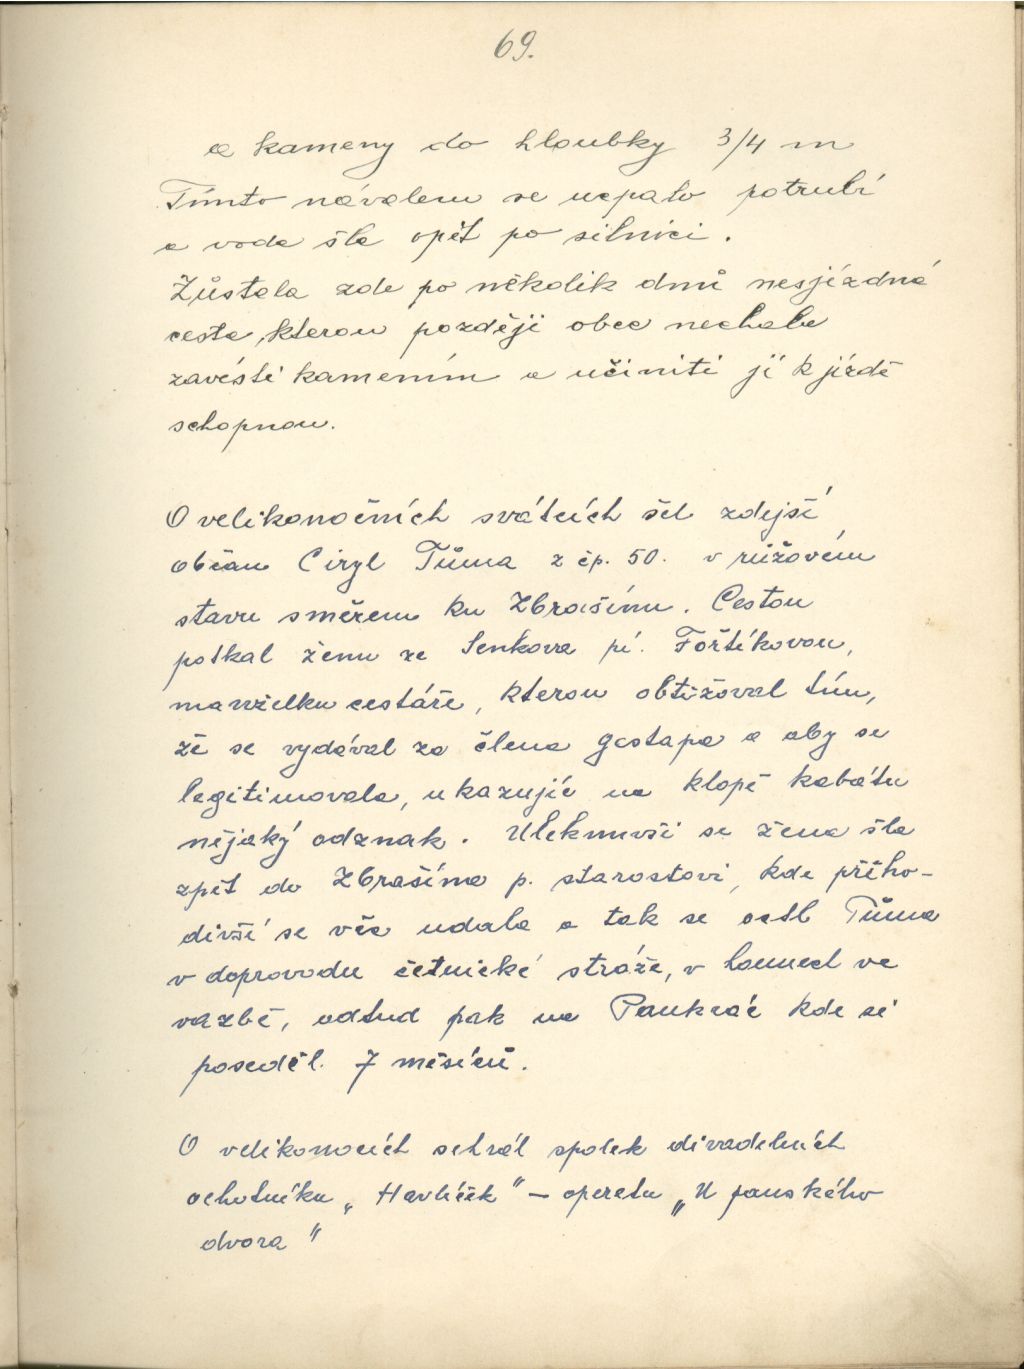 69.
a kameny do hloubky 3/4 m
Tímto návalem se ucpalo potrubí
a voda šla opět po silnici.
Zůstala zde po několik dnů nesjízdná
cesta, kterou později obec nechala
zavésti kamením a učiniti jí k jízdě
schopnou.
O velikonočních svátcích šel zdejší
občan Ciryl Tůma z čp. 50. v růžovém
stavu směrem ku Zbrašínu. Cestou
potkal ženu ze Senkova pí. Foršíkovou,
manželku cestáře, kterou obtěžoval tím,
že se vydával za člena gestapa a aby se
legitimovala, ukazujíc na klopě kabátu
nějaký odznak. Uleknuvši se žena šla
zpět do Zbrašína p. starostovi, kde přího-
divší se věc udala a tak se octl Tůma
v doprovodu četnické stráže, v Lounech ve
vazbě, odtud pak na Pankrác kde si
poseděl. 7 měsíců.
O velikonocích sehrál spolek divadelních
ochotníku „Havlíček" – operetu „U panského
dvora"